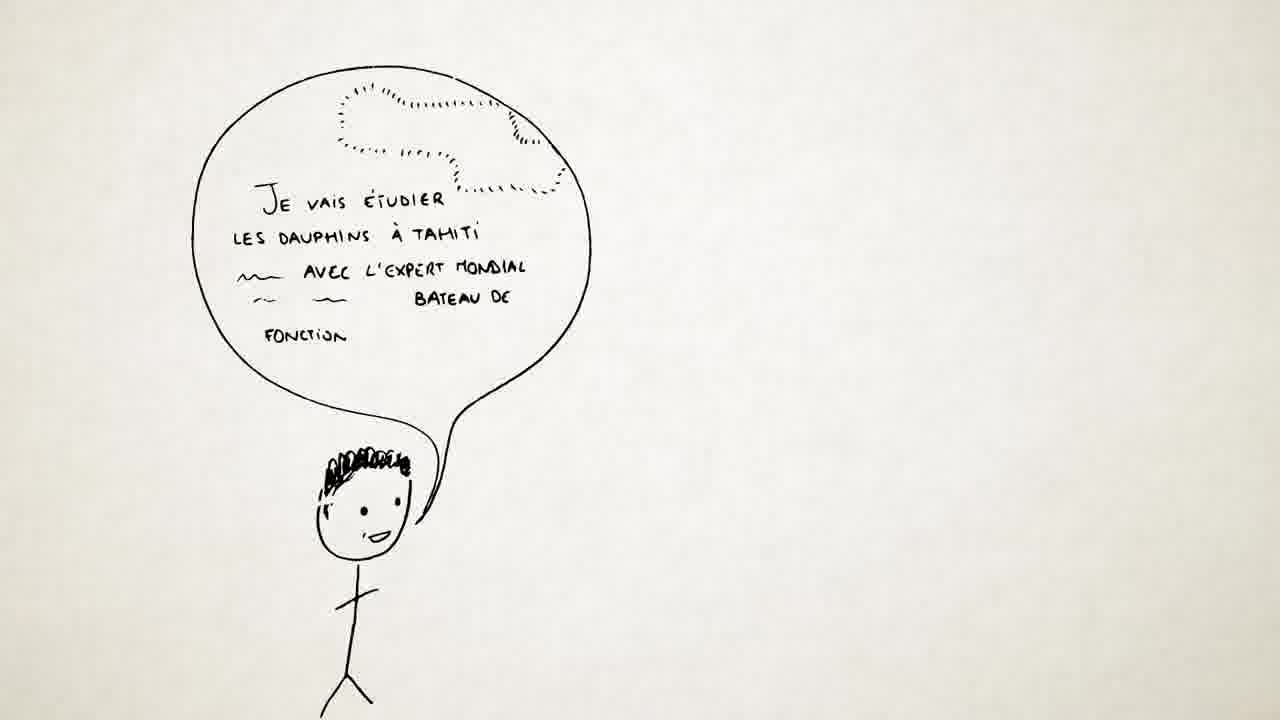 Je vais étudier
les dauphins à Tahiti
avec l'expert mondial
bateau de
fonction